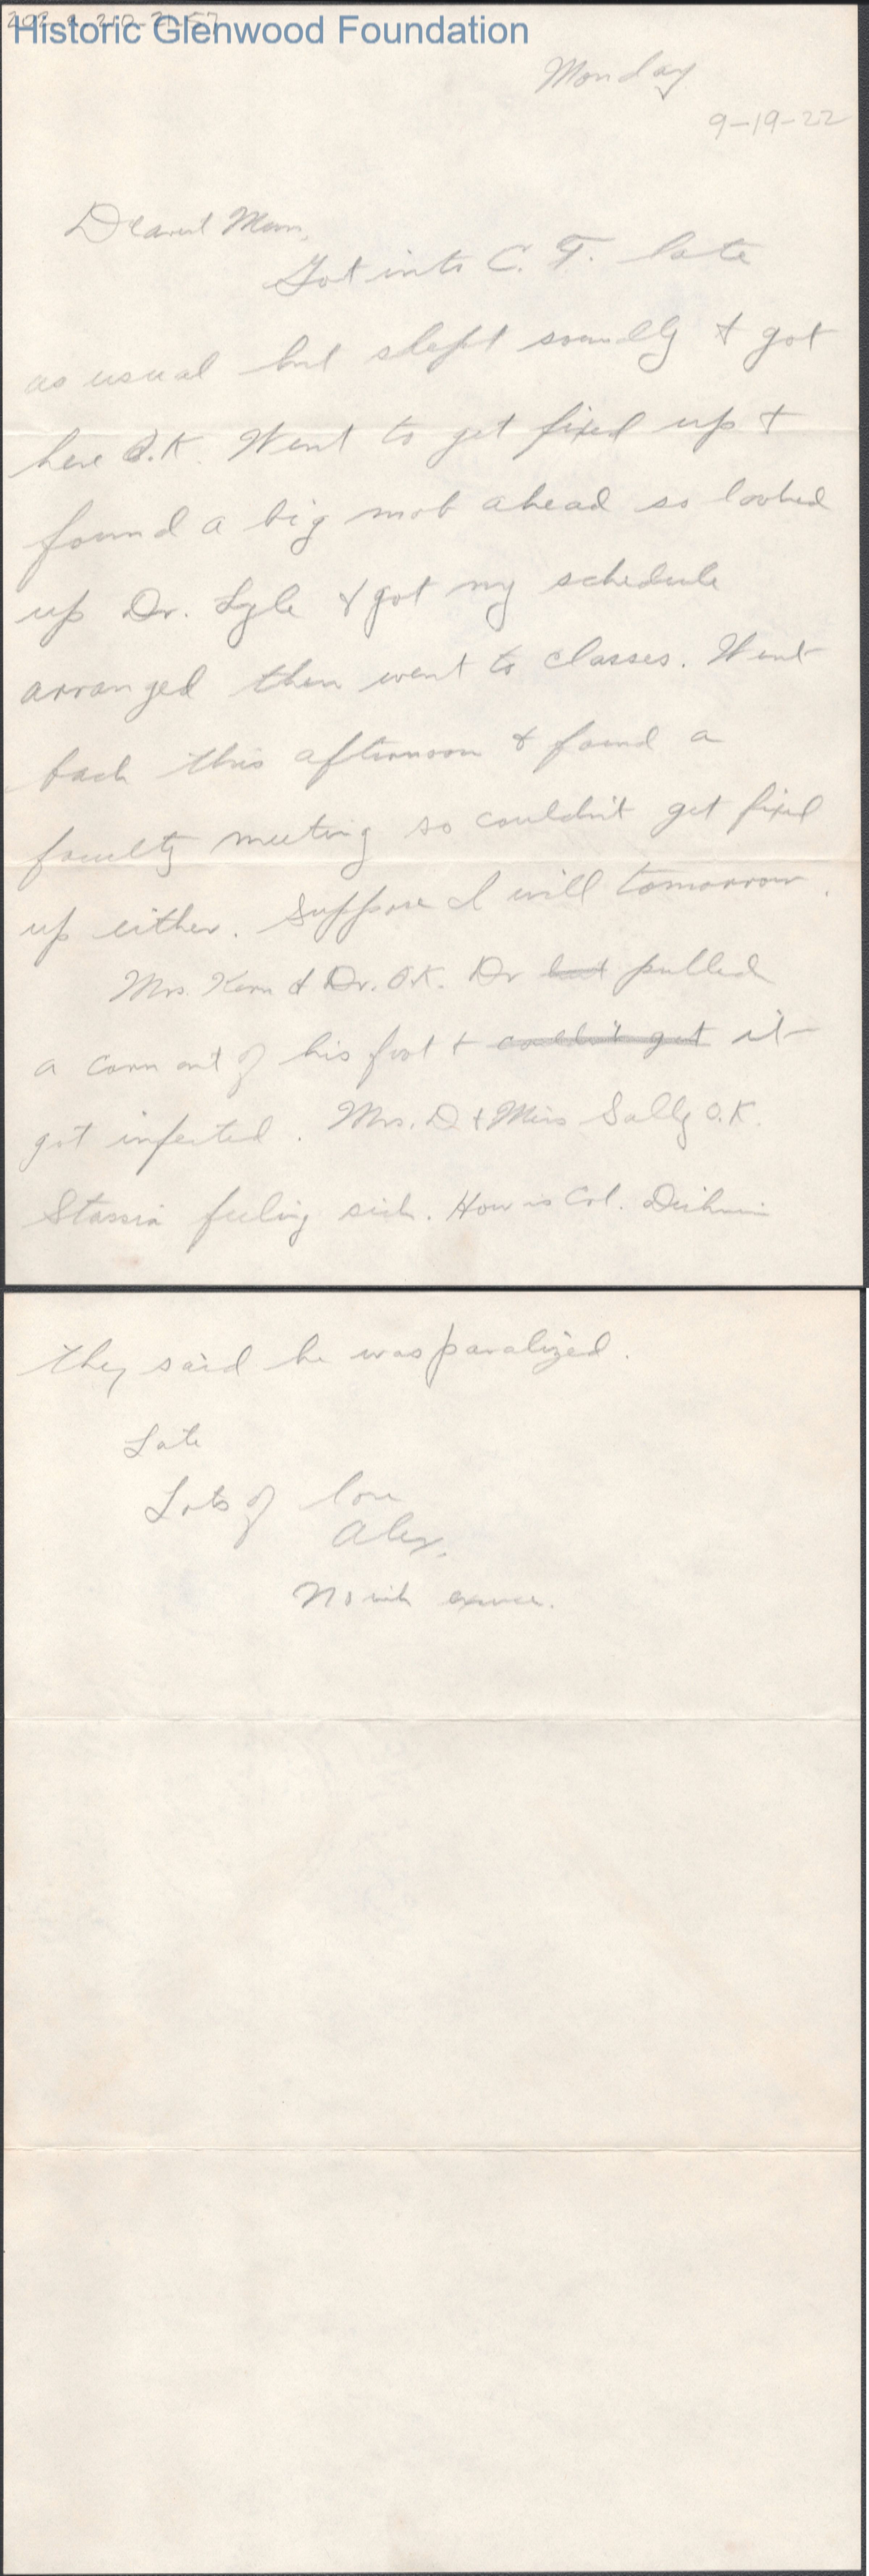 Historic Glenwood Foundation
Monday
9-19-22
Dearest Mom,
Got into C. F. late
as usual but slept soundly & got
here O.K. Went to get fixed up &
found a big mob ahead so looked
up Dr. Lyle & got my schedule
arranged then went to classes. Went
back this afternoon & found a
faculty meeting so couldn't get fixed
up either. Suppose I will tomorrow.
Mrs. Kern & Dr. O.K. Dr pulled
a corn out of his foot & couldn't get it
got infected. Mrs. D & Miss Sally O.K.
Stassia feeling sick. How is Col.
they said he was paralized.
Late
Lots of love
Alex.
No ink excuse.